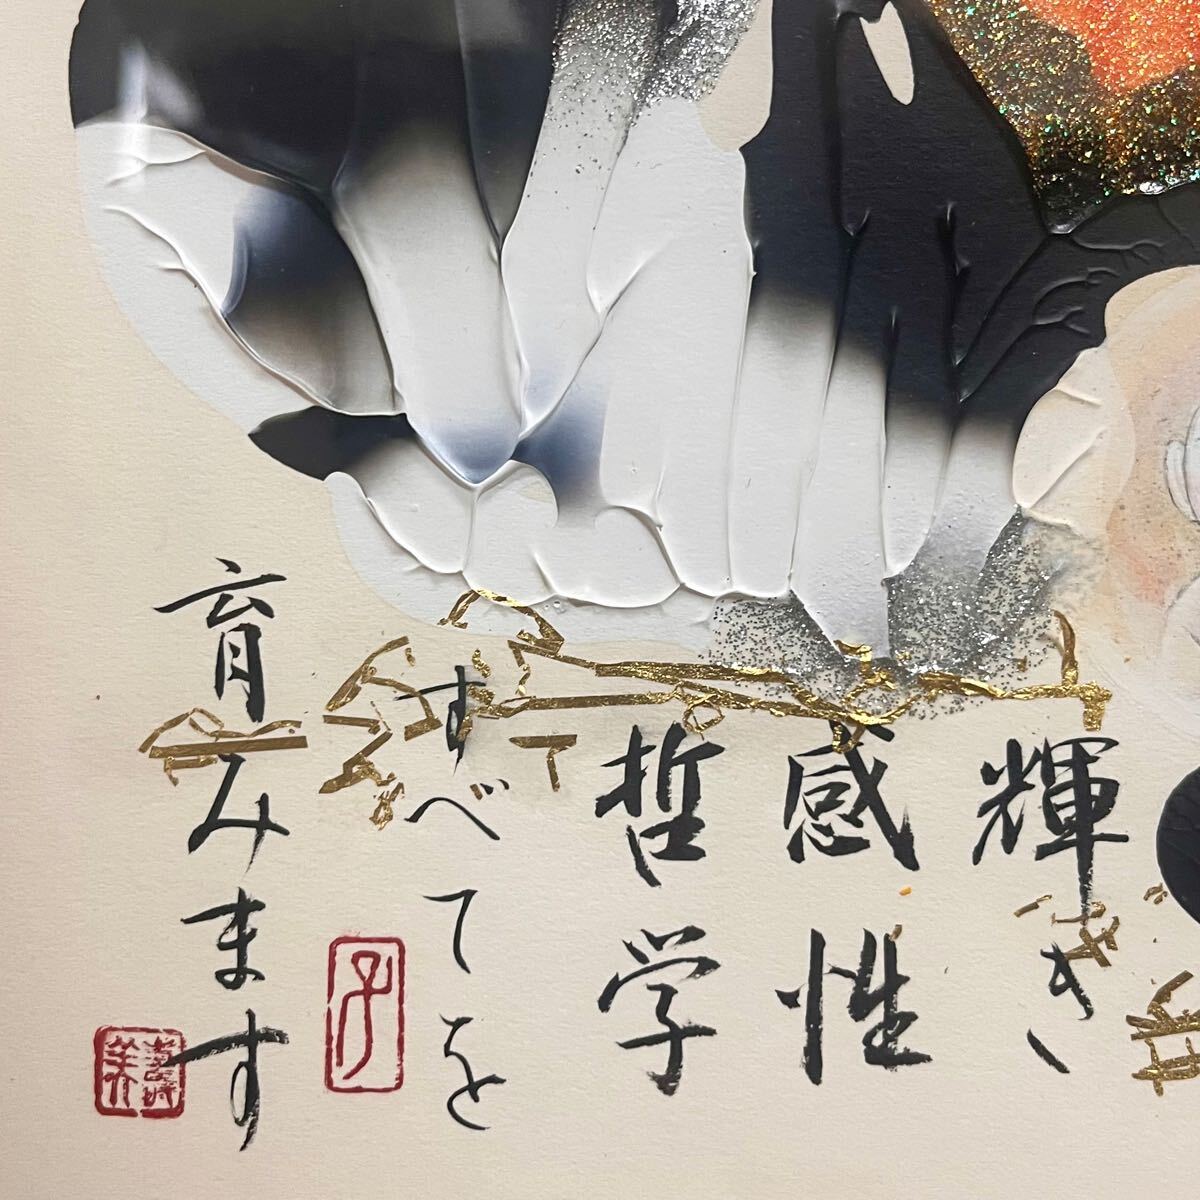 輝き
感性
哲学
すべてを
育みます
子